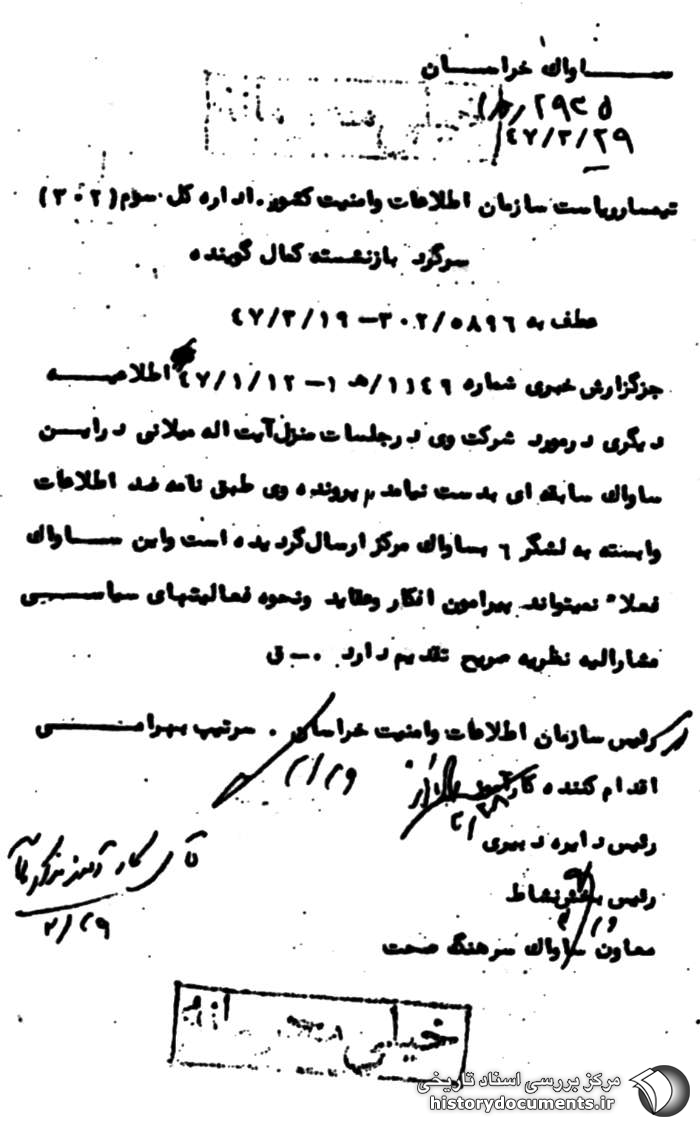 ساواك خراسان
۲۹۳۵/
۴۷/۳/۲۹
تیمسار ریاست سازمان اطلاعات و امنیت كشور. اداره كل سوم (۳۰۲)
سرگرد بازنشسته كمال گوینده
عطف به ۳۰۲/۵۸۹۶ – ۴۷/۳/۱۹
جز گزارش خبری شماره ۱۱۴۹/هـ ۱ – ۴۷/۱/۱۲ اطلاعیـــه
دیگری درمورد شركت وی درجلسات منزل آیت اله میلانی دراین
ساواك سابقه ای بدست نیامد پرونده وی طبق نامه ضد اطلاعات
وابسته به لشگر ۶ بساواك مركز ارسال گردیده است و این ساواك
فعلا" نمیتواند پیرامون افكار وعقاید ونحوه فعالیتهای سیاسی
مشارالیه نظریه صریح تقدیم دارد. – ق
رئیس سازمان اطلاعات وامنیت خراسان. سرتیپ بهرامی
اقدام كننده
رئیس دایره دبیری
رئیس بخش نشاط
معاون ساواك سرهنگ صحت
خیلی محرمانه
مرکز بررسی اسناد تاریخی
historydocuments.ir